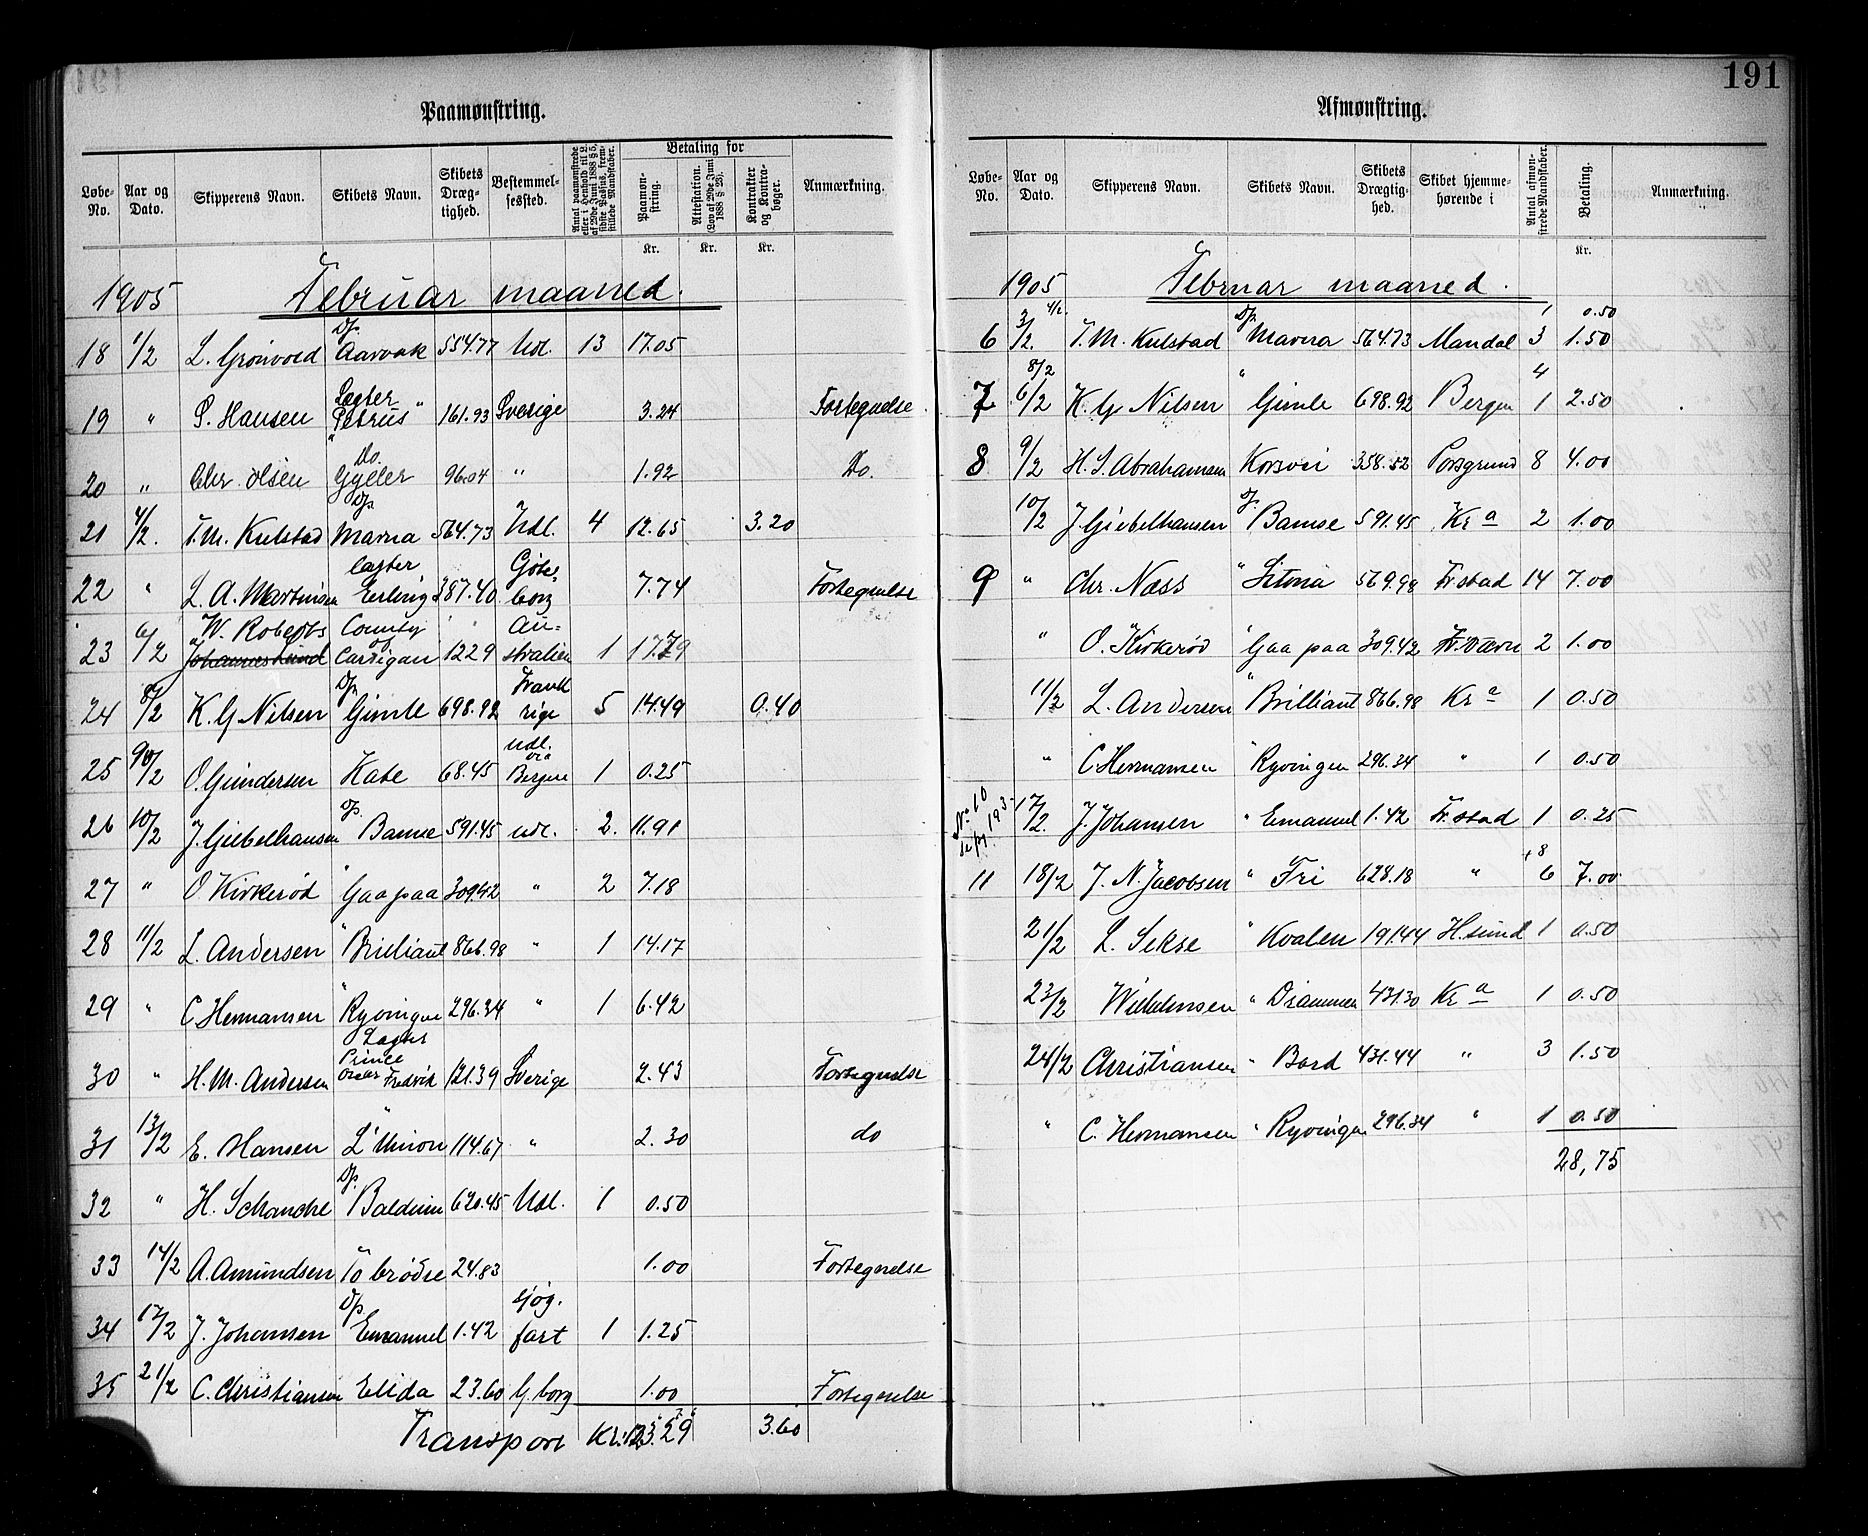 191
Paamønstring.
Løbe-No. Aar og Dato. Skipperens Navn. Skibets Navn. Skibets Dræg-tighed. Bestemmel-sessted. Antal paamønstrede eller i Henhold til L. af 29de Juni 1888 § 5, sidste Passus, frem-stillede Mandskaber. Betaling for Paamøn-string. Attestation. (Lov af 29de Juni 1888 § 23). Kontrakter og Kontra-bøger. Anmærkning.
Kr. Kr. Kr.
1905 Februar maaned.
18 1/2 L. Grönvold Ds. Aarvak 554.77 Udl. 13 17.05
19 " S. Hansen Lægter "Petrus" 161.93 Sverige 3.24 Fortegnelse.
20 " Chr. Olsen Do. Gyller 96.04 " 1.92 Do.
21 4/2. T.M. Kulstad Ds. Mavna 564.73 Udl. 4 12.65 3.20
22 " L. A. Martinsen Lægter Erling 387.40 Göte-borg 7.74 Fortegnelse
23 6/2 W. Roberts Johannes Lund County of Cardigan 1229 Au-stralien 1 17.79
24 8/2 K. G Nilsen Ds. Gimle 698.92 Frank rige 5 14.49 0.40
25 9/2 O. Gundersen Kate 68.45 Udl. via Bergen 1 0.25
26 10/2 J. Giebelhausen Ds. Bamse 591.45 Udl. 2. 11.91
27 " O Kirkerød " Gaa paa 309.42 " 2 7.18
28 11/2 L. Andersen " Brilliant 866.98 " 1 14.17
29 " C Hermansen " Ryvingen 296.34 " 1 6.42
30 " H. M. Andersen Lagter Prince Oscar Fredrik 121.39 Sverige 2.43 Fortegnelse
31 13/2 E. Hansen " L'Union 114.67 " 2.30 do
32 " H. Schanche Ds. Balduin 620.45 Udl. 1 0.50
33 14/2 A. Amundsen To brödre 24.83 1.00 Fortegnelse
34 17/2 J. Johansen Ds. Emanuel 1.42 Sjög. fart 1 1.25
35 21/2 C. Christiansen Elida 23.60 G. borg 1.00 Fortegnelse
Transport Kr. 123.29 3.60
Afmønstring.
Løbe-No. Aar og Dato. Skipperens Navn. Skibets Navn. Skibets Drægtig-hed. Skibet hjemme-hørende i Antal afmøn-strede Mandskaber. Betaling. Anmærkning.
Kr.
1905 Februar maaned.
4/2. 1 0.50
6 3/2. T. M. Kulstad Ds. Mavna 564.73 Mandal 3 1.50
8/2 4
7 6/2 K. G Nilsen " Gimle 698.92 Bergen 1 2.50
8 9/2 H. S. Abrahamsen Korsvei 358.52 Porsgrund 8 4.00
10/2 J. Giebelhausen Ds. Bamse 591.45 Kr a 2 1.00
9 " Chr. Næss " Sitona 569.98 Fr.stad 14 7.00
" O. Kirkerød " Gaa paa 309.42 Fr.værn 2 1.00
11/2 L. Andersen " Brilliant 866.98 Kr a 1 0.50
" C Hermansen " Ryvingen 296.34 " 1 0.50
No 10 se pag 193 17/2. J. Johansen " Emanuel 1.42 Fr.stad 1 0.25
+8
11 18/2 J. N. Jacobsen " Fri 628.18 " 6 7.00
21/2 L. Sekse " Kvalen 191.44 H.sund 1 0.50
23/2 Wilhelmsen " Drammen 431.30 Kr a 1 0.50
24/2 Christiansen " Bard 431.44 " 3 1.50
" C. Hermansen " Ryvingen 296.34 " 1 0.50
28,75